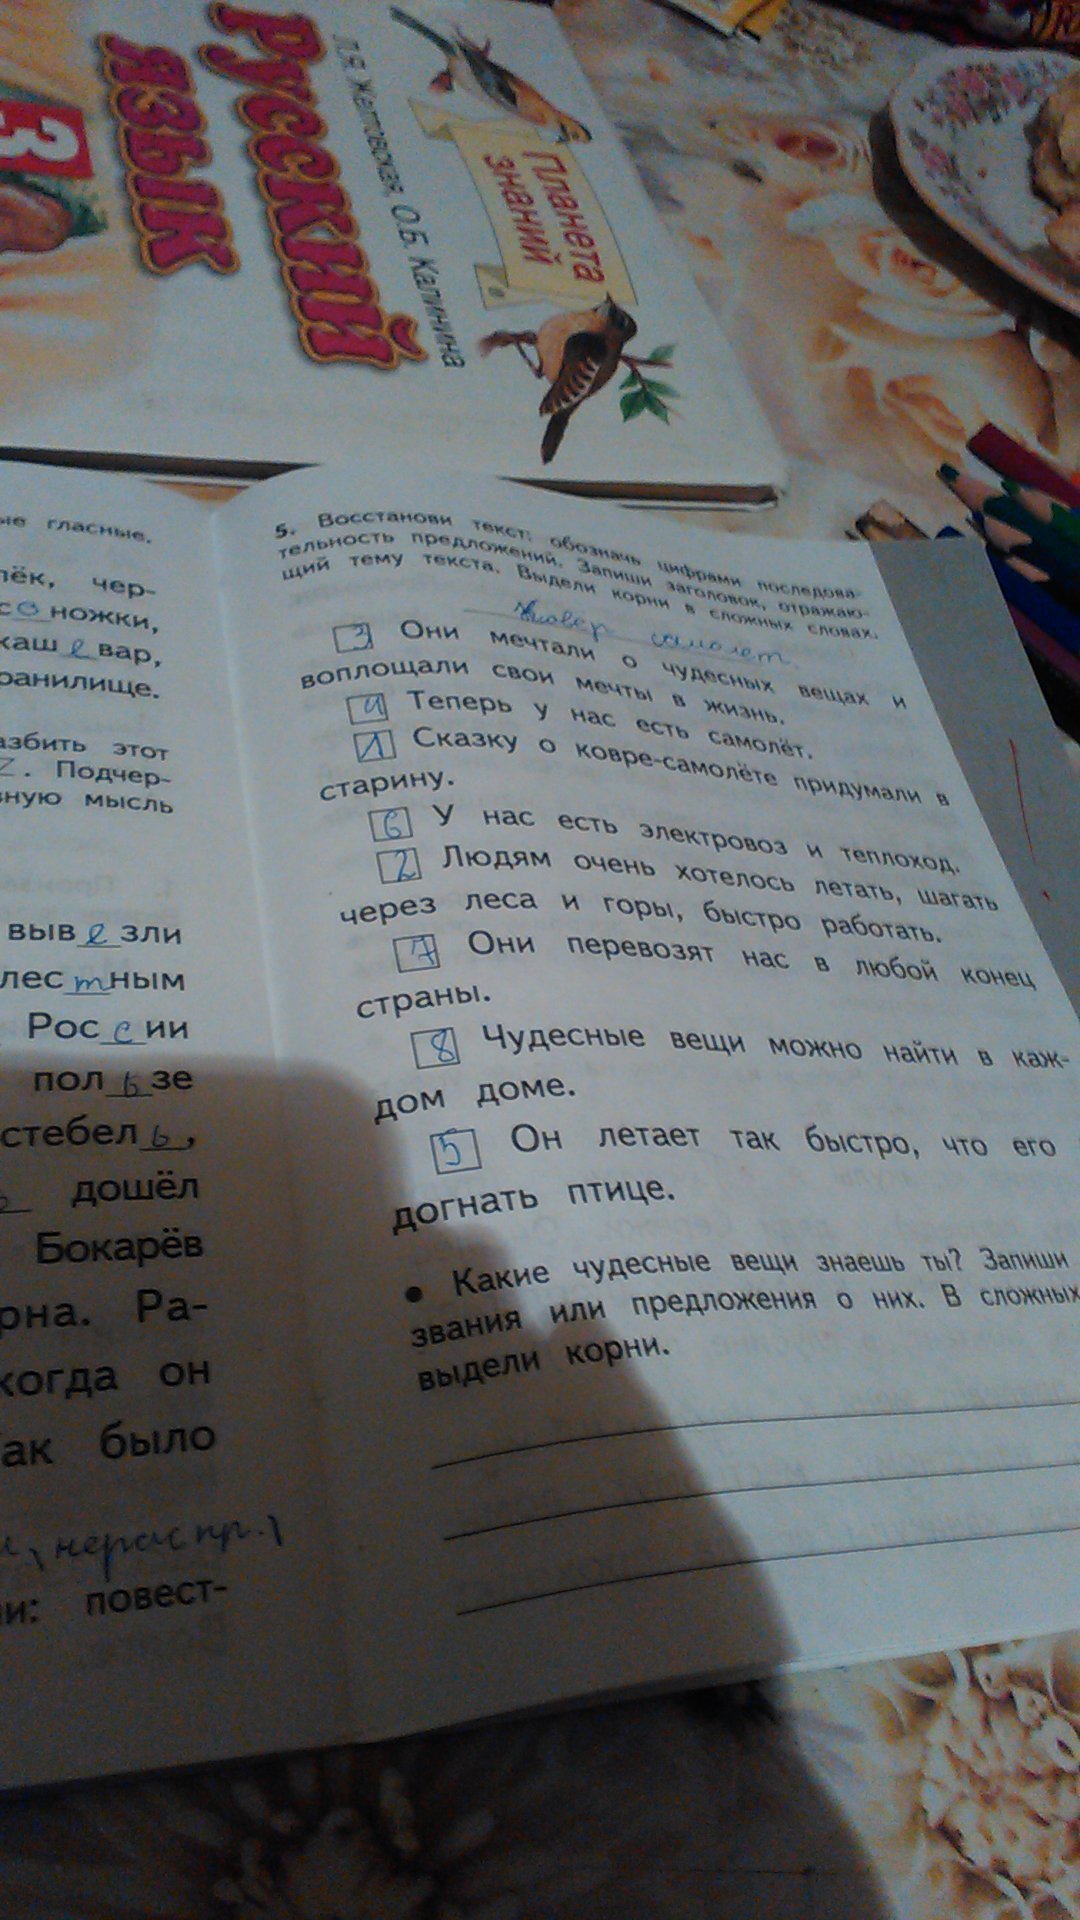 Л.Я. Желтовская, О.Б. Калинина
РУССКИЙ
ЯЗЫК
3
Планета
знаний
ые гласные.
лёк, чер-
с о ножки,
каш е вар,
ранилище.
азбить этот
Z. Подчер-
вную мысль
выв е зли
лес т ным
Рос с ии
пол ь зе
стебел ь ,
дошёл
Бокарёв
рна. Ра-
когда он
ак было
нерас пр.
и: повест-
5. Восстанови текст: обозначь цифрами последова-
тельность предложений. Запиши заголовок, отражаю-
щий тему текста. Выдели корни в сложных словах.
Ковёр самолёт.
3 Они мечтали о чудесных вещах и
воплощали свои мечты в жизнь.
4 Теперь у нас есть самолёт.
1 Сказку о ковре-самолёте придумали в
старину.
6 У нас есть электровоз и теплоход.
2 Людям очень хотелось летать, шагать
через леса и горы, быстро работать.
7 Они перевозят нас в любой конец
страны.
8 Чудесные вещи можно найти в каж-
дом доме.
5 Он летает так быстро, что его
догнать птице.
• Какие чудесные вещи знаешь ты? Запиши
звания или предложения о них. В сложных
выдели корни.